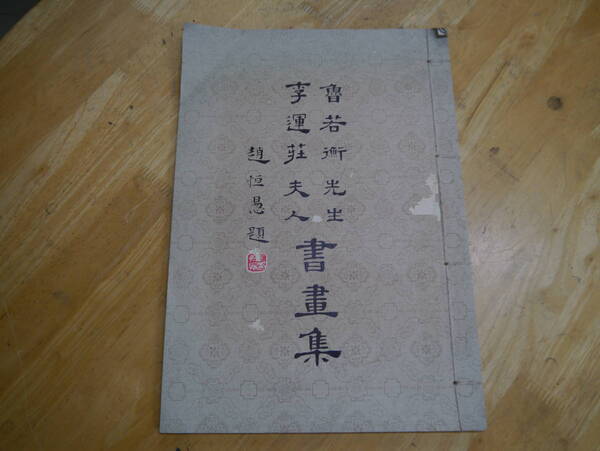 魯若衡先生
李運莊夫人
書畫集
趙恒惖題